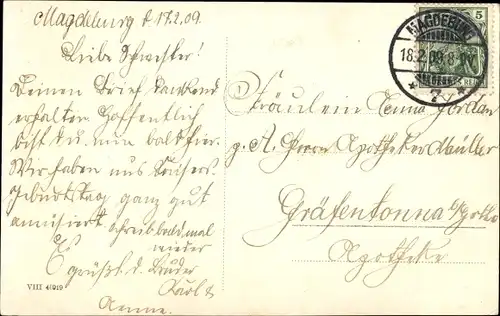 Magdeburg d 17.2.09.
Liebe Schwester!
Deinen Brief dankend
erhalten. Hoffentlich
bist du nun bald hier.
Wir haben uns Kaisers
Geburtstag ganz gut
amüsiert schreib bald mal
wieder
Es
grüßt d. Bruder
Karl &
Anna.
VIII 4(019
5
MAGDEBURG
18.2.09.8-9V.
* 7 *
Fräulein Anna Jordan
z. A. Herrn Apotheker Müller
Gräfentonna b/Gotha
Apotheke